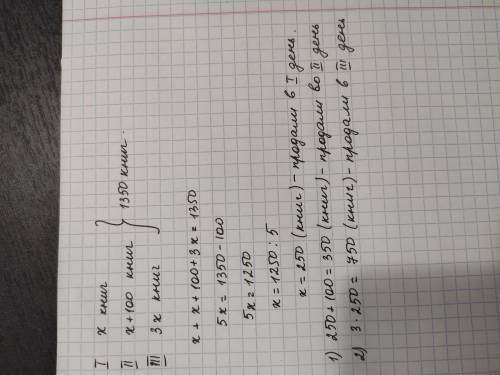 I x книг
II x+100 книг } 1350 книг.
III 3x книг
x + x + 100 + 3x = 1350
5x = 1350 - 100
5x = 1250
x = 1250 : 5
x = 250 (книг) - продали в I день.
1) 250 + 100 = 350 (книг) - продали во II день
2) 3 · 250 = 750 (книг) - продали в III день